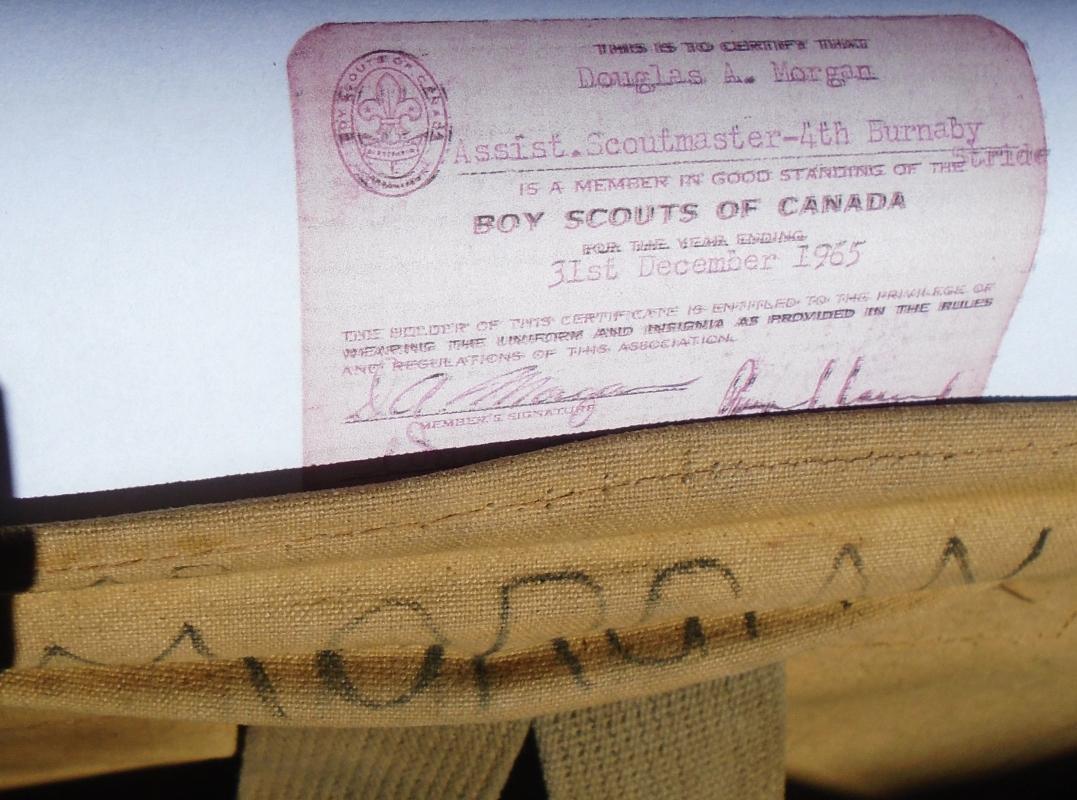 BOY SCOUTS OF CANADA
THIS IS TO CERTIFY THAT
Douglas A. Morgan
Assist.Scoutmaster-4th Burnaby
Stride
IS A MEMBER IN GOOD STANDING OF THE
BOY SCOUTS OF CANADA
FOR THE YEAR ENDING
31st December 1965
THE HOLDER OF THIS CERTIFICATE IS ENTITLED TO THE PRIVILEGE OF
WEARING THE UNIFORM AND INSIGNIA AS PROVIDED IN THE RULES
AND REGULATIONS OF THIS ASSOCIATION.
D A. Morgan
MEMBER'S SIGNATURE
MORGAN